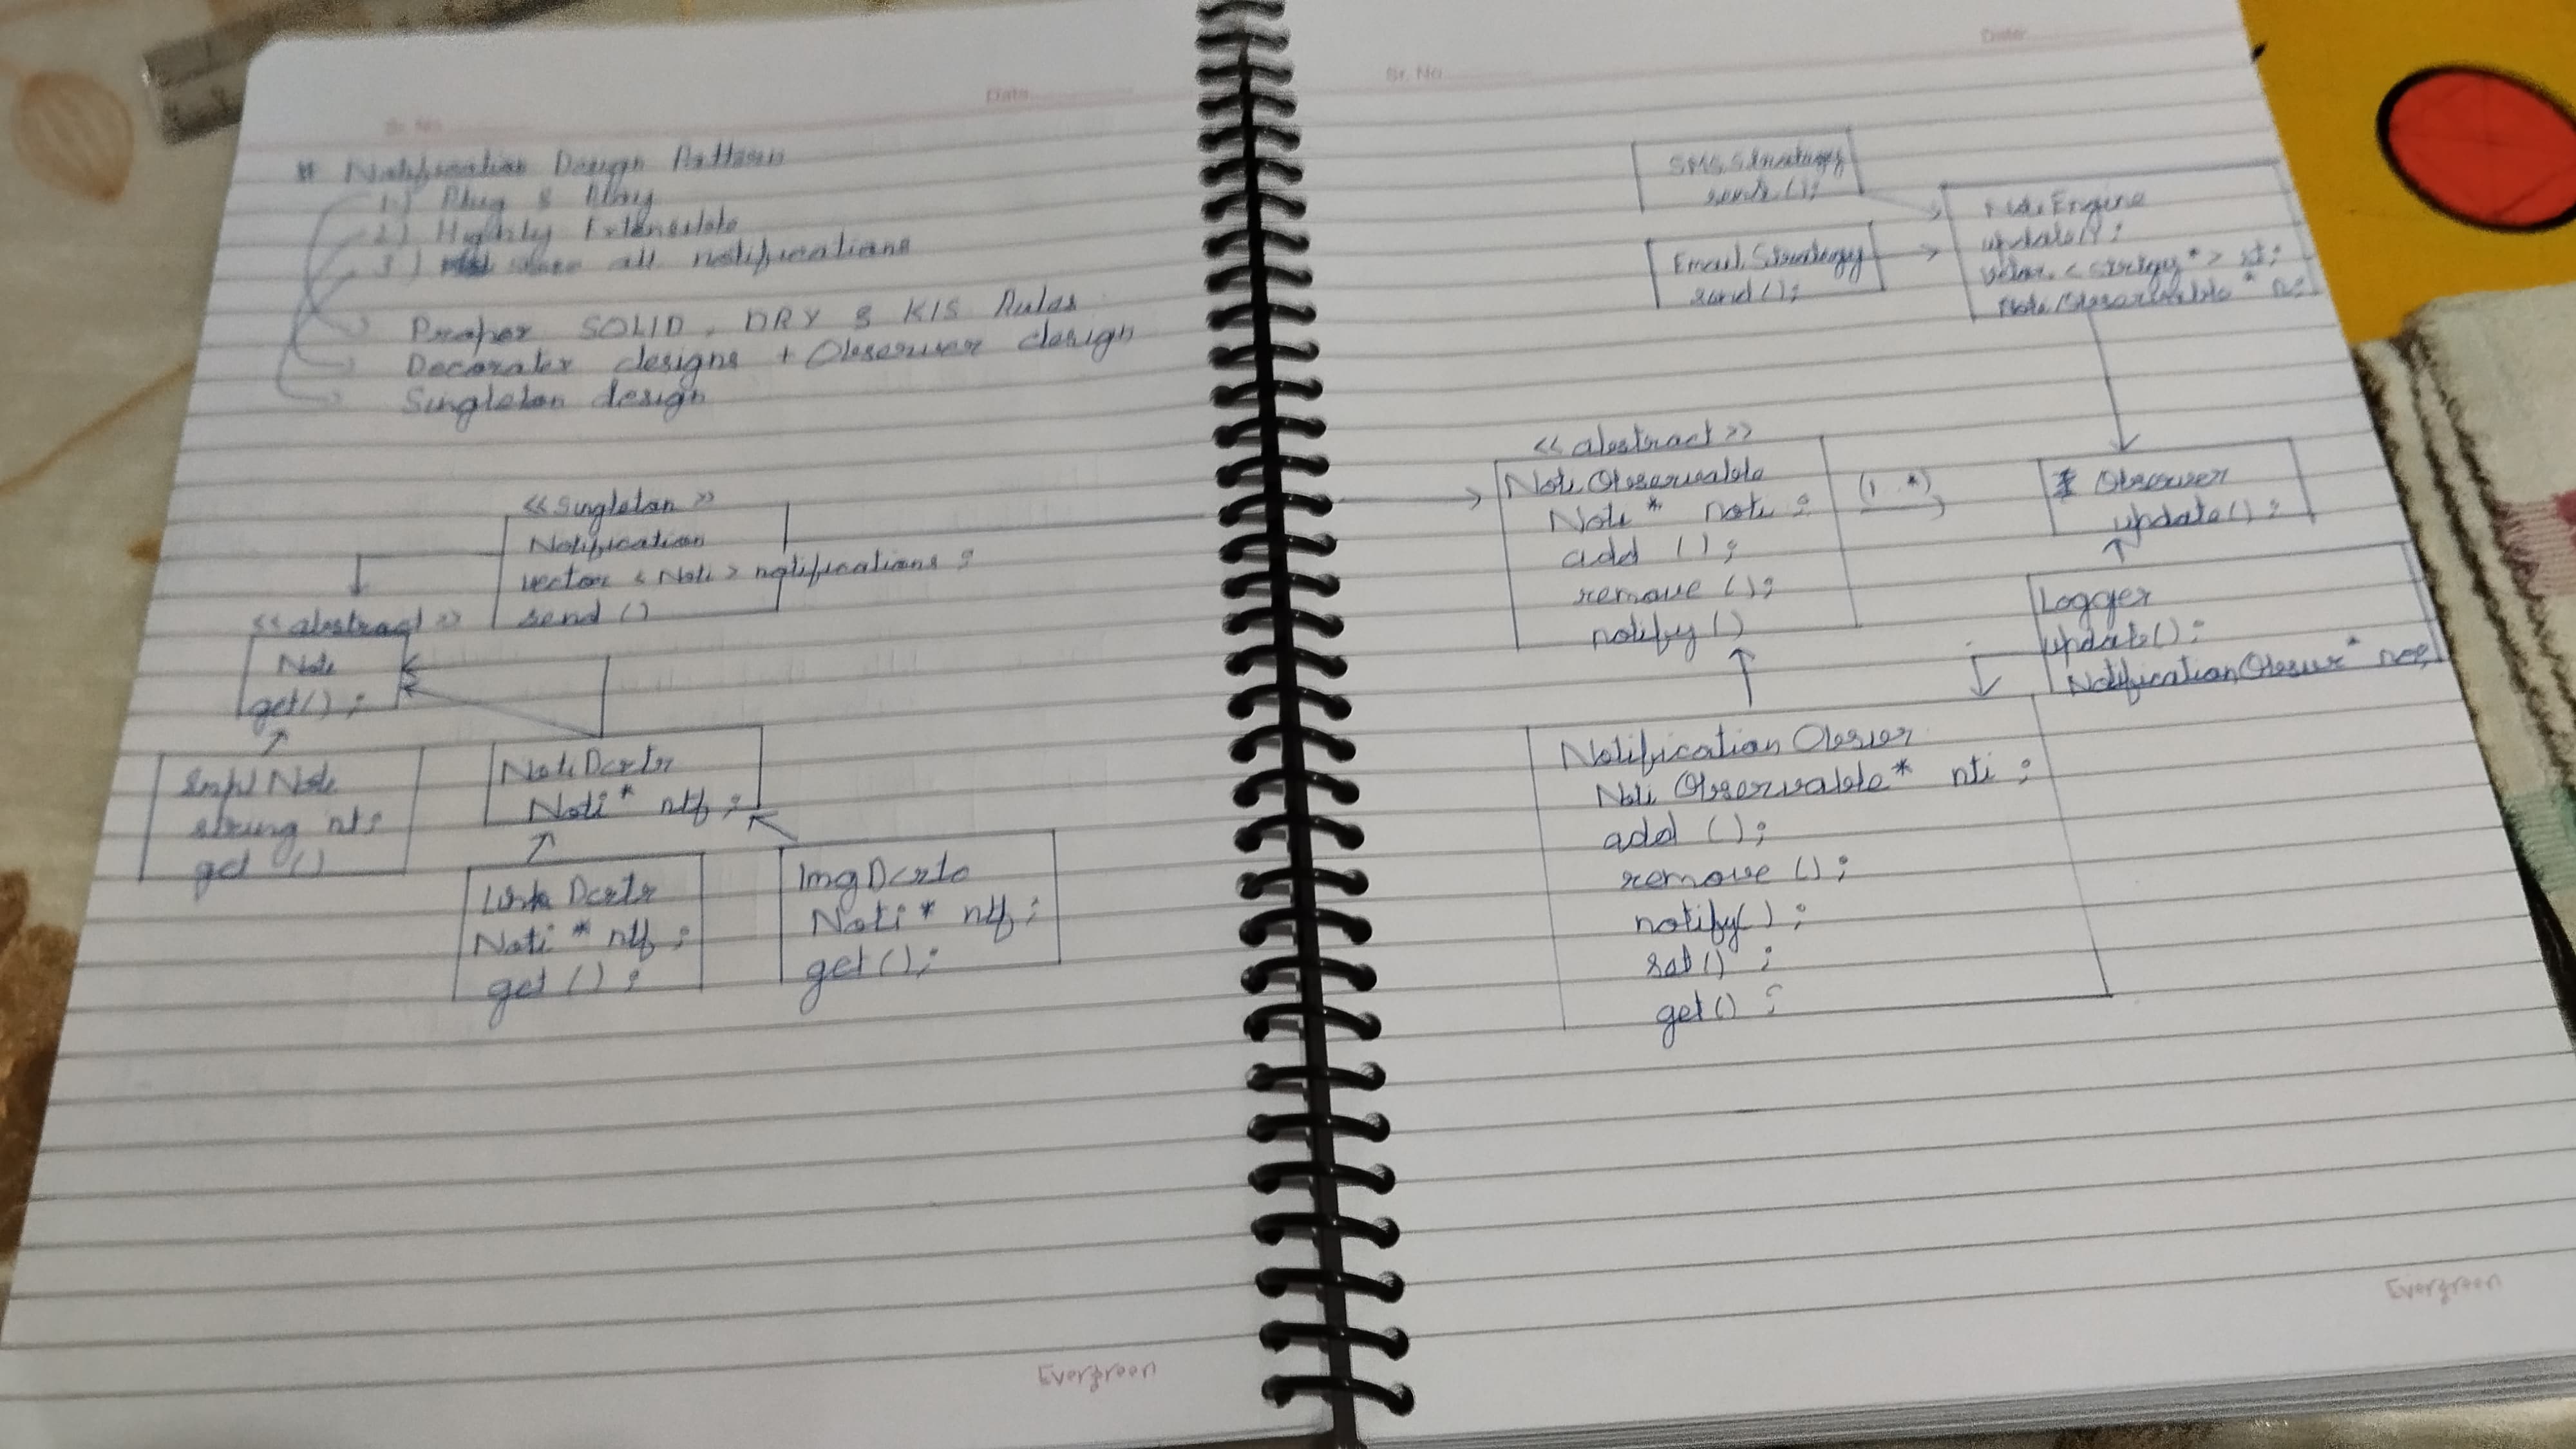 Sr. No.
Date
# Notification Design Pattern
1.) Plug & Play
2.) Highly Extensible
3.) store all notifications
Proper SOLID, DRY & KIS Rules
Decorater designs + Observer design
Singleton design
<< Singleton >>
Notification
vector < Noti > notifications ;
send ()
<< abstract >>
Noti
get() ;
Smpl Noti
string nt;
get ()
NotiDcrtr
Noti * ntf ;
Link Dcrtr
Noti * ntf ;
get () ;
ImgDcrto
Noti * ntf ;
get () ;
Evergreen
Sr. No
Date
SMS Strategy
send ();
Email Strategy
send ();
Noti Engine
update();
Noti Observable * n;
<< abstract >>
Noti Observable
Noti * noti ;
add () ;
remove () ;
notify ()
(1..*)
Observer
update() ;
Logger
update() ;
Notification Obsur *
Notification Obsrer
Noti Observable * nti ;
add () ;
remove () ;
notify() ;
set() ;
get() ;
Evergreen